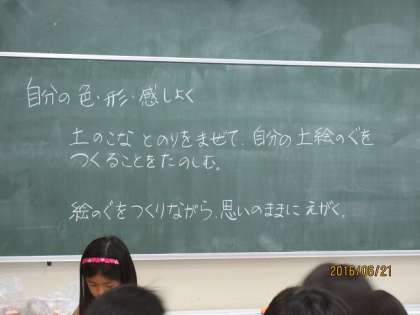 自分の色・形・感しょく
土のこなとのりをまぜて、自分の土絵のぐを
つくることをたのしむ。
絵のぐをつくりながら、思いのままにえがく。
2016/06/21